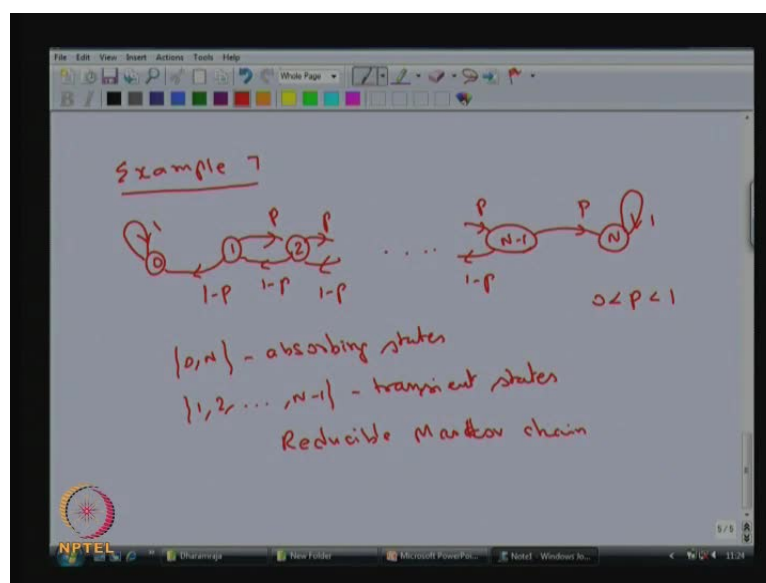 File Edit View Insert Actions Tools Help
Whole Page
B I
Example 7
1 p p p p 1
0 1 2 .... N-1 N
1-p 1-p 1-p 1-p 0<p<1
{0,N} - absorbing states
{1,2,...,N-1} - transient states
Reducible Markov chain
5/5
NPTEL Dharamraja New Folder Microsoft PowerPoi... Note1 - Windows Jo... 11:24